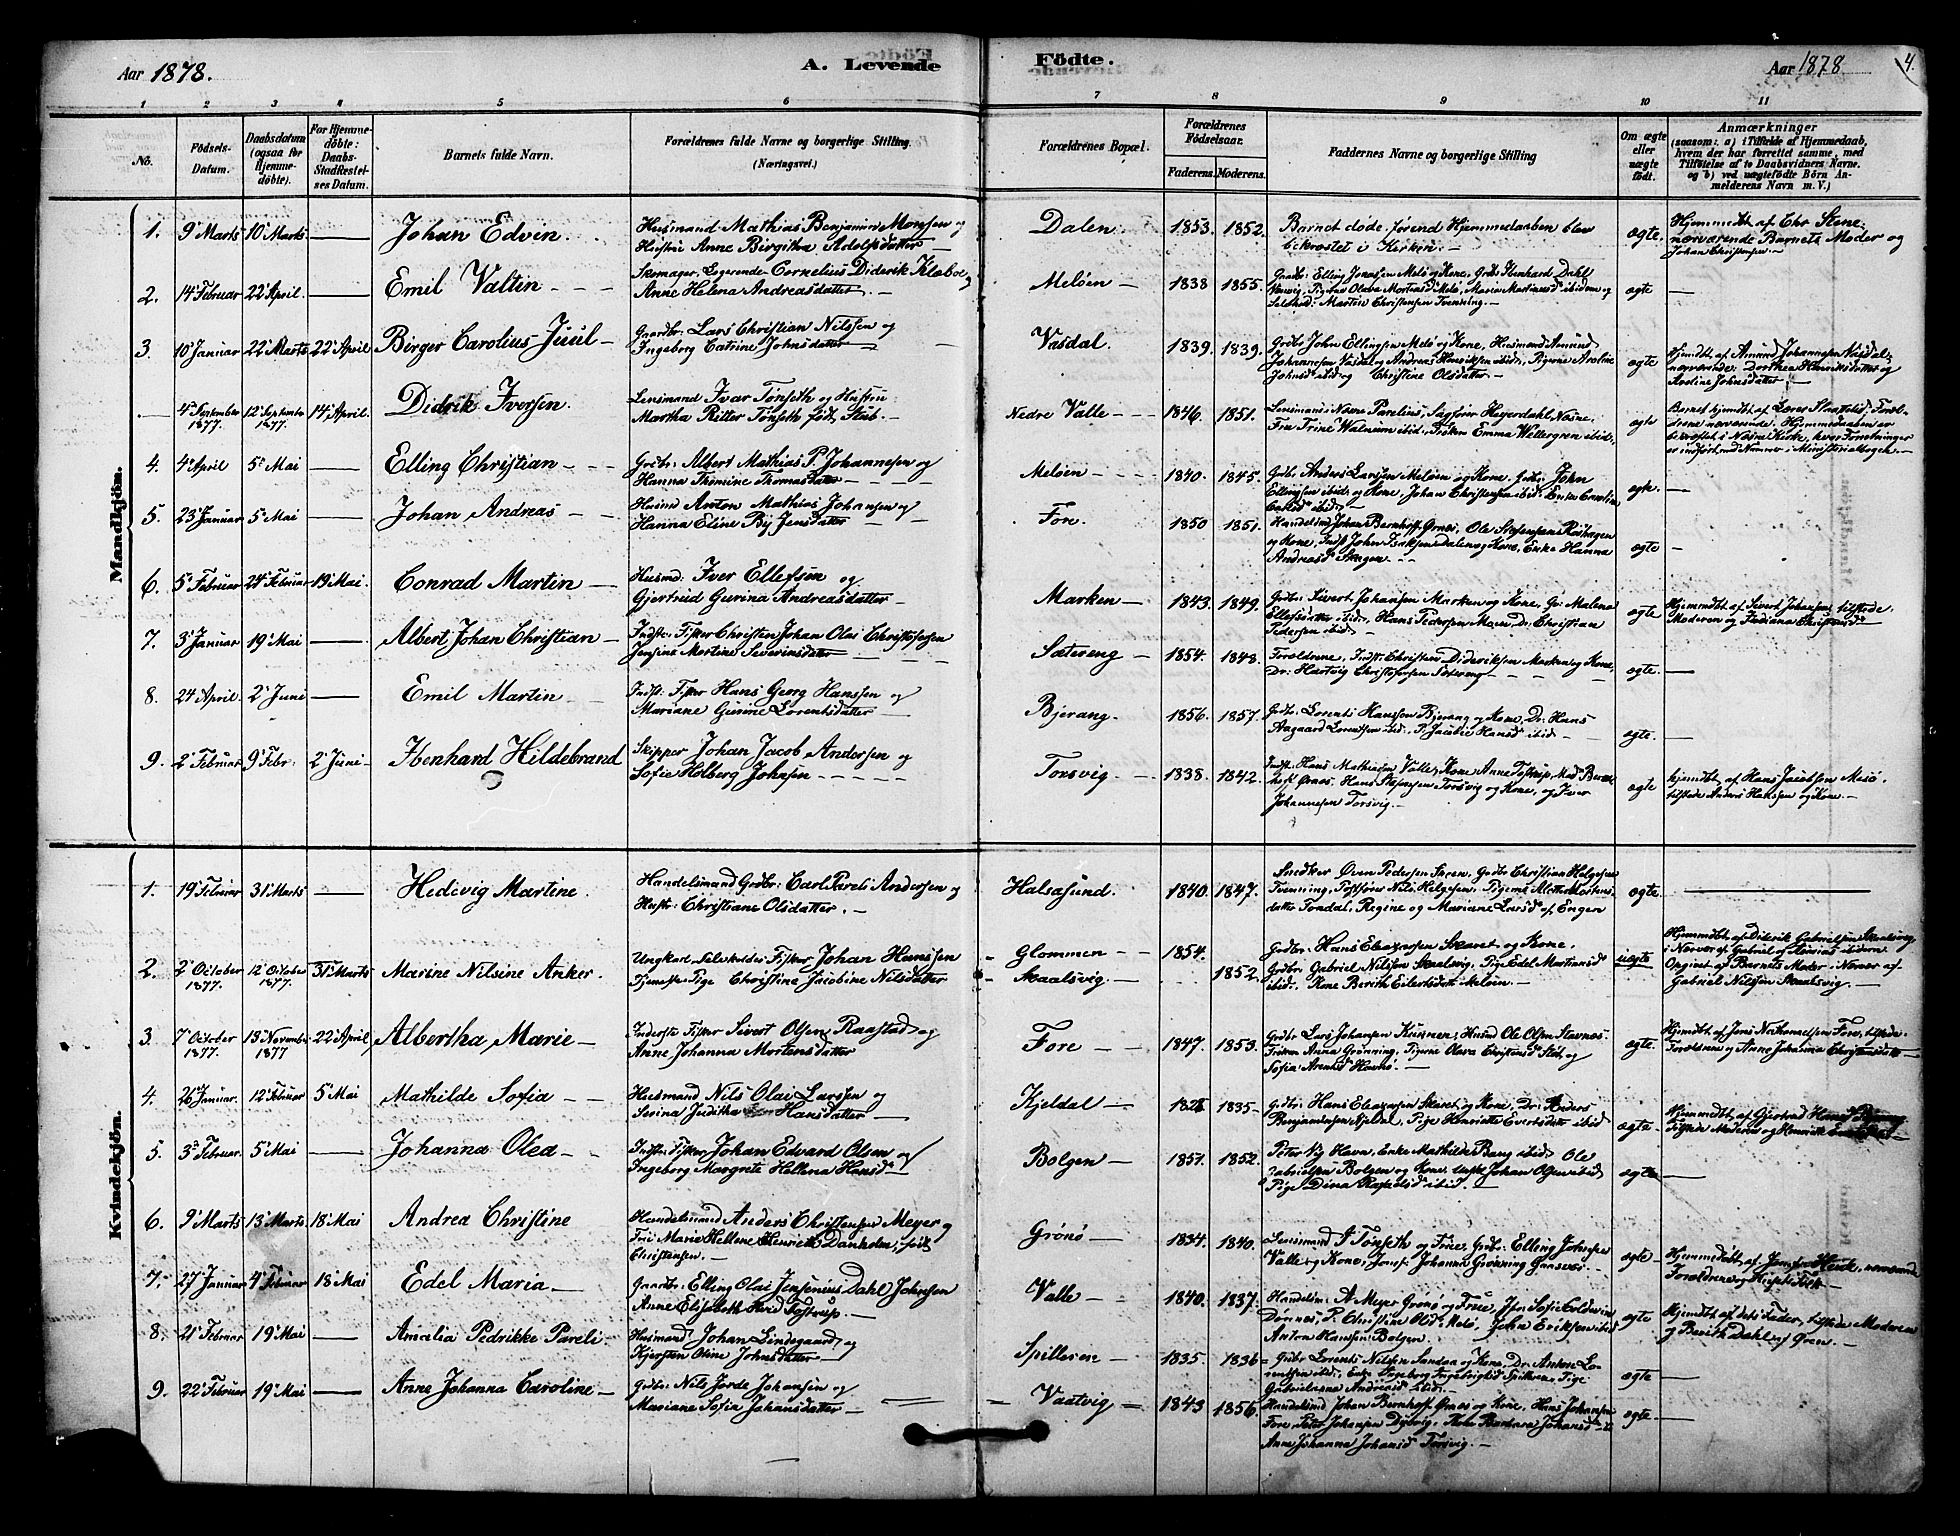 Aar 1878.
A. Levende Födte.
Aar 1878
4.
1 2 3 4 5 6 7 8 9 10 11
No.
Födsels-Datum.
Daabsdatum (ogsaa for Hjemme-döbte).
For Hjemme-döbte: Daabs-Stadfæstel-ses Datum.
Barnets fulde Navn.
Forældrenes fulde Navne og borgerlige Stilling. (Næringsvei.)
Forældrenes Bopæl.
Forældrenes Födselsaar.
Faderens. Moderens.
Faddernes Navne og borgerlige Stilling
Om ægte eller uægte födt.
Anmærkninger
(saasom: a) i Tilfælde af Hjemmedaab,
hvem der har forrettet samme, med
Tilföielse af to Daabsvidners Navne.
og b) ved uægtefödte Börn An-
melderens Navn m. V.)
Mandkjön.
1. 9' Marts 10' Marts — Johan Edvin.
Husmand Mathias Benjamin Monsen og
Hustru Anne Birgitha Adolfsdatter —
Dalen — 1853. 1852.
Barnet døde, førend Hjemmedaaben blev
bekræftet i Kirken. —
ægte.
Hjemmedbt af Chr Stene,
nærværende Barnets Moder og
Johan Christensen. —
2. 14' Februar 22' April. — Emil Valtin - - -
Skomager, Logerende Cornelius Diderik Klæboe og
Anne Helena Andreasdatter. —
Meløen — 1838 1855.
Grdbr: Elling Jonassen Meløe og Kone, Grdbr: Ibenhard Dahl
ægte —
3. 10' Januar 22' Marts 22' April Birger Carolius Juul —
Gaardbr: Lars Christian Nilssen og
Ingeborg Catrine Johnsdatter —
Vasdal. 1839. 1839.
Grdbr John Ellingsen Melø og Kone, Husmand Amund
Johannesen Vasdal og Andreas Henriksen ibid., Pigerne Aroline
Johnsd' ibid og Christine Olsdatter. —
ægte
Hjemdbt. af Amund Johannesen Vasdal,
nærværende: Dorthea Henriksdatter og
Aroline Johnsdatter. —
4' September 1877. 12' Septembr 1877. 14' April. Didrik Iversen.
Lensmand Ivar Tønseth og Hustru
Martha Ritter Tønseth født Støb. —
Nedre Valle — 1846. 1851.
Lensmand i Næsne Parelius, Sagfører Heyerdahl Næsne,
Fru Trine Walnum ibid., Frøken Emma Wettergren ibid.
ægte
Barnet hjemdbt. af Lærer Straffelid, Foræl-
drene nærværende. Hjemmedaaben er
bekræftet i Næsne Kirke, hvor Forretningen
er indført med Nummer i Ministerialbogen. —
4. 4' April 5' Mai — Elling Christian - - -
Grdbr: Albert Mathias P. Johannesen og
Hanna Thomine Thomasdatter - - -
Meløen — 1840. 1845.
Grdbr: Anders Larssen Meløen og Kone, John
Ellingsen ibid. og Kone, Johan Christensen ibid. Enke Caroline
ægte. —
5. 23' Januar 5' Mai — Johan Andreas —
Husmd Anton Mathias Johansen og
Hanna Eline By Jensdatter - -
Fore. 1850 1851.
Handelsmd Johan Bernhoff Ørnes, Ole Stefensen Reishagen
og Kone, Indst John Eriksen Dalen og Kone, Enke Hanna
Andreasd' Skagen. —
ægte —
6. 5' Februar 24' Februar 19' Mai. Conrad Martin —
Husmd: Iver Ellefsen og
Gjertrud Gurina Andreasdatter —
Marken — 1843. 1849.
Grdbr: Sivert Johansen Marken og Kone, Malena
Ellefsdatter ibid., Hans Pedersen Moen, Dr: Christian
Pedersen ibid. —
ægte
Hjemmdbt. af Sivert Johansen, tilstede
Moderen og Indiana Christensd'
7. 3' Januar 19' Mai — Albert Johan Christian —
Indst: Fisker Christen Johan Olai Christofersen
Jensine Martine Severinsdatter —
Sætereng — 1854. 1848.
Forældrene, Indst: Christen Dideriksen Marken og Kone,
Dr: Hartvig Christofersen Sætereng —
ægte. —
8. 24' April. 2' Juni — Emil Martin —
Indst: Fisker Hans Georg Hanssen og
Mariane Gurine Lorentsdatter —
Bjerang. 1856. 1857.
Grdbr: Lorents Hanssen Bjerang og Kone, Dr: Hans
Aagaard Lorentsen ibid., P. Jacobie Hansd' ibid. —
ægte. —
9. 2' Februar 9' Febr. 2' Juni — Ibenhard Hildebrand
Skipper Johan Jacob Andersen og
Sofie Holberg Johnsen - - -
Torsvig — 1838. 1842.
Indst: Hans Mathisen Valle, Kone Anne Tostrup, Mad' Bern-
hoff Ørnes, Hans Stefensen Torsvig og Kone, og Iver
Johannesen Torsvig. —
ægte
hjemdbt. af Hans Jacobsen Mesø,
tilstede Anders Hanssen og Kone. —
Kvindekjön.
1. 19' Februar 31' Marts — Hedevig Martine.
Handelsmand Grdbr: Carl Pareli Andersen og
Hustr: Christiane Olsdatter. —
Halsasund. 1840. 1847.
Snedker Øren Pedersen Støren, Grdbr Christian Helgesen
Trenning, Postfører Nils Helgesen, Pigerne Alethe Mortens-
datter Tondal, Regine og Mariane Larsd' af Engen
ægte —
2. 2' October 1877. 12' October 1877. 31' Marts Marine Nilsine Anker.
Ungkarl, Fisker Johan Hanssen
Tjeneste-Pige Christine Jacobine Nilsdatter
Glommen — Skaalsvig — 1854. 1852.
Grdbr: Hans Eleazersen Skaret og Kone,
Grdbr: Gabriel Nilssen Skaalsvig, Pige Edel Martinusd'
ibid., Kone Berith Eilertsdatter Meløen. —
uægte
Hjemmdbt. af Diderik Gabrielsen Skaalsvig
i Nærvær af Gabriel og Hansine ibidem.
Opgivet af Barnets Moder i Nærvær af
Gabriel Nilssen Skaalsvig. —
3. 7' October 1877. 13' November 1877 22' April, Albertha Marie —
Inderste Fisker Sivert Olsen Raastad og
Anne Johanna Mortensdatter
Fore — 1847. 1853.
Grdbr: Lars Johansen Kunnen, Husmd Ole Olsen Stavnes,
Frøken Anna Grønning, Pigerne Olava Christensd' Støb, og
Sofia Arentsd' Havnø. —
ægte.
Hjemdbt. af Jens Nathanaelsen Fore, tilstede
Forældrene og Anne Johanna Christensdatter —
4. 26' Januar. 12' Februar 5' Mai Mathilde Sofia —
Husmand Nils Olai Larssen og
Serina Juditha Hansdatter —
Kjeldal — 1828 1835 —
Grdbr: Hans Eleazersen Skaret og Kone, Dr: Anders
Benjaminsen Kjeldal, Pige Henriette Evertsdatter ibid
ægte —
Hjemmdbt. af Gjertrud
Tilstede Moderen og Henriette
5. 3' Februar. 5' Mai — Johanna Olea —
Indst: Fisker Johan Edvard Olsen og
Ingeborg Margrete Hellena Hansd' —
Bolgen — 1851. 1852.
Peter Nig Havn, Enke Mathilde Bang ibid. Ole
Gabrielsen Bolgen og Kone, Johan Olsen ibid
Pige Dina Rafaelsd' ibid. —
ægte —
6. 9' Marts 13' Marts 18' Mai Andrea Christine
Handelsmand Anders Christensen Meyer og
Frue Maria Hellene Henriette Danholm, født
Christensen. —
Grønø — 1834. 1840.
Lensmand I Tønseth og Frue, Grdbr: Elling Johnsen
Valle og Kone, Jomf: Johanna Grønning Gaasvær. —
ægte —
Forældrene og
7. 27' Januar 4' Februar 18' Mai Edel Maria —
Gaardbr: Elling Olai Jensenius Dahl Johnsen
Anne Elisabeth Hvid Tostrup. —
Valle — 1840. 1837.
Handelsm: A Meyer Grønø og Frue, Jfr: Sofie Coldevin
Dønnes, P. Christine Olsd' Melø, John Eriksen ibid
Anton Hanssen Bolgen. —
ægte
Hjemdbt. af dets Fader, tilstede Moderen
og Berith Dahl af Øren. —
8. 21' Februar 19' Mai — Amalia Pedrikke Pareli —
Husmand Johan Lindegaard, og
Kjersten Oline Johnsdatter —
Spilderen — 1835. 1836
Grdbr Lorents Nilssen Sandaa og Kone, Dr. Anton Lo-
rentsen ibid., Enke Ingeborg Ingebrigtsd Spilderen, Pige
Gabrielana Andreasd' ibid. —
ægte —
9. 22' Februar 19' Mai — Anne Johanna Caroline —
Grdbr: Nils Jorde Johansen og
Mariane Sofia Johansdatter —
Vaatvig — 1843 1856.
Handelsmd Johan Bernhoff Ørnes og Kone, Hans Johansen
Fore, Peter Johansen Dybvig, Kone Barbara Johansd'
Anne Johanna Johansd' Torsvig. —
ægte. —